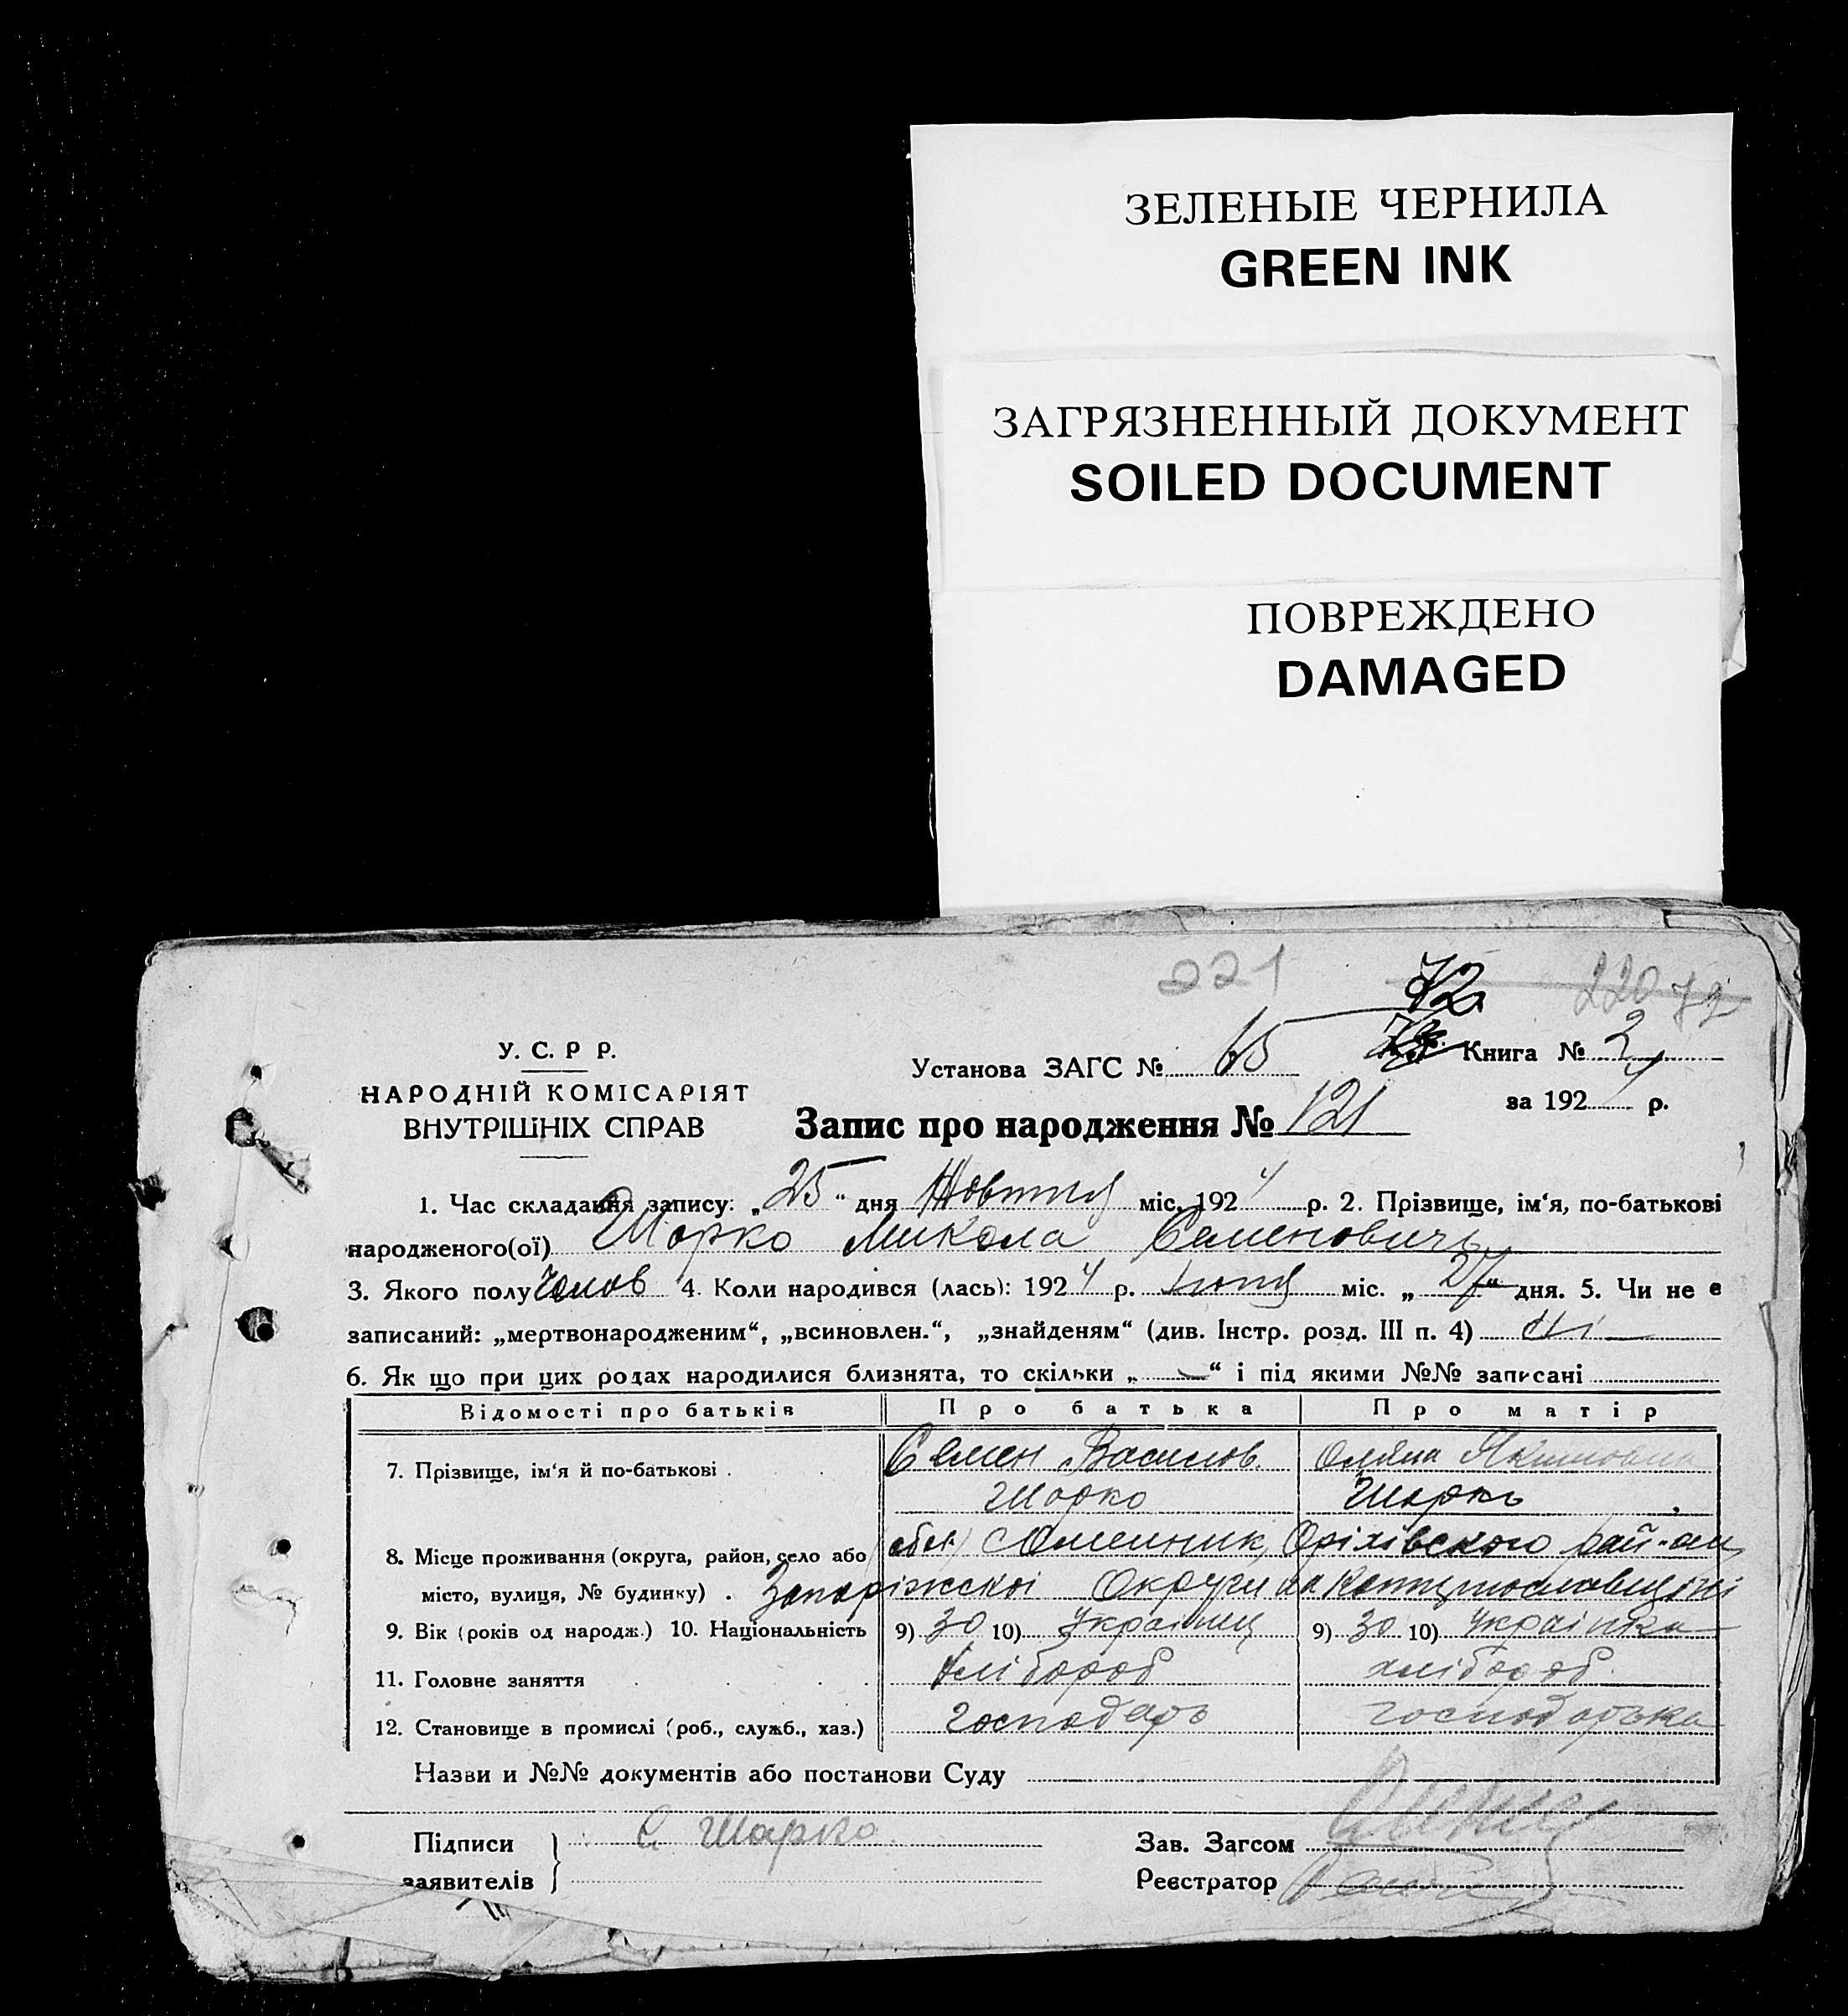 ЗЕЛЕНЫЕ ЧЕРНИЛА
GREEN INK
ЗАГРЯЗНЕННЫЙ ДОКУМЕНТ
SOILED DOCUMENT
ПОВРЕЖДЕНО
DAMAGED
221 72 220 72
У. С. Р Р.
НАРОДНІЙ КОМІСАРІЯТ
ВНУТРІШНІХ СПРАВ
Установа ЗАГС № 65 Книга № 2
за 1924 р.
Запис про народження № 121
1. Час складання запису: „25“ дня Жовтня міс. 1924 р. 2. Прізвище, ім‘я, по-батькові
народженого(ої) Шарко Микола Семеновичъ
3. Якого полу Чолов 4. Коли народився (лась): 1924 р. міс. „27“ дня. 5. Чи не є
записаний: „мертвонародженим“, „всиновлен.“, „знайденям“ (див. Інстр. розд. III п. 4) Ні
6. Як що при цих родах народилися близнята, то скільки „ “ і під якими №№ записані
Відомості про батьків Про батька Про матір
7. Прізвище, ім‘я й по-батькові . Семен Василов. Оляна Якимовна
Шарко Шарко
8. Місце проживання (округа, район, село або Омельник, Оріхівского
місто, вулиця, № будинку) . Запоріжскоі Округи на
9. Вік (років од народж.) 10. Національність 9) 30 10) Українец 9) 30 10) Українка
11. Головне заняття хлібороб хлібороб
12. Становище в промислі (роб., служб., хаз.) господарь господарька
Назви и №№ документів або постанови Суду
Підписи С Шарко Зав. Загсом
заявителів Реєстратор